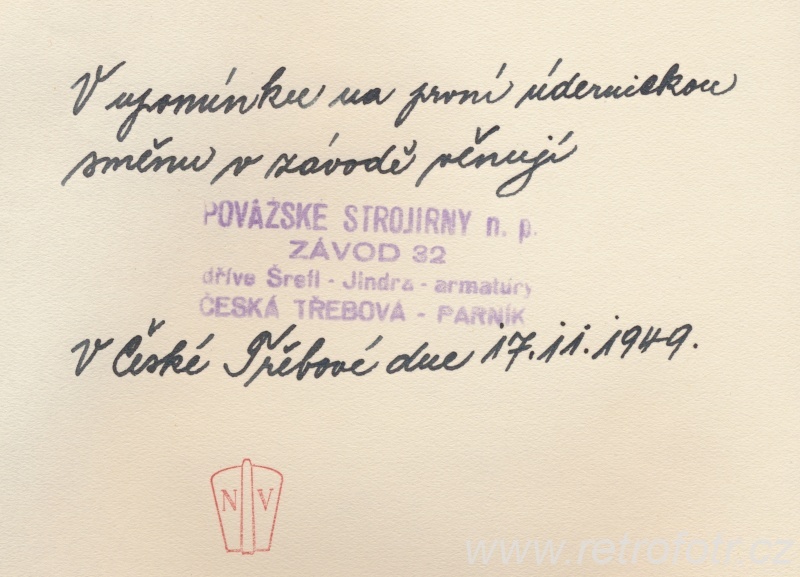 V upomínku na první údernickou
směnu v závodě věnují
POVÁŽSKÉ STROJIRNY n. p.
ZÁVOD 32
dříve Šrefl - Jindra - armatury
ČESKÁ TŘEBOVÁ - PARNÍK
V České Třebové dne 17.11.1949.
N V
www.retrofotr.cz